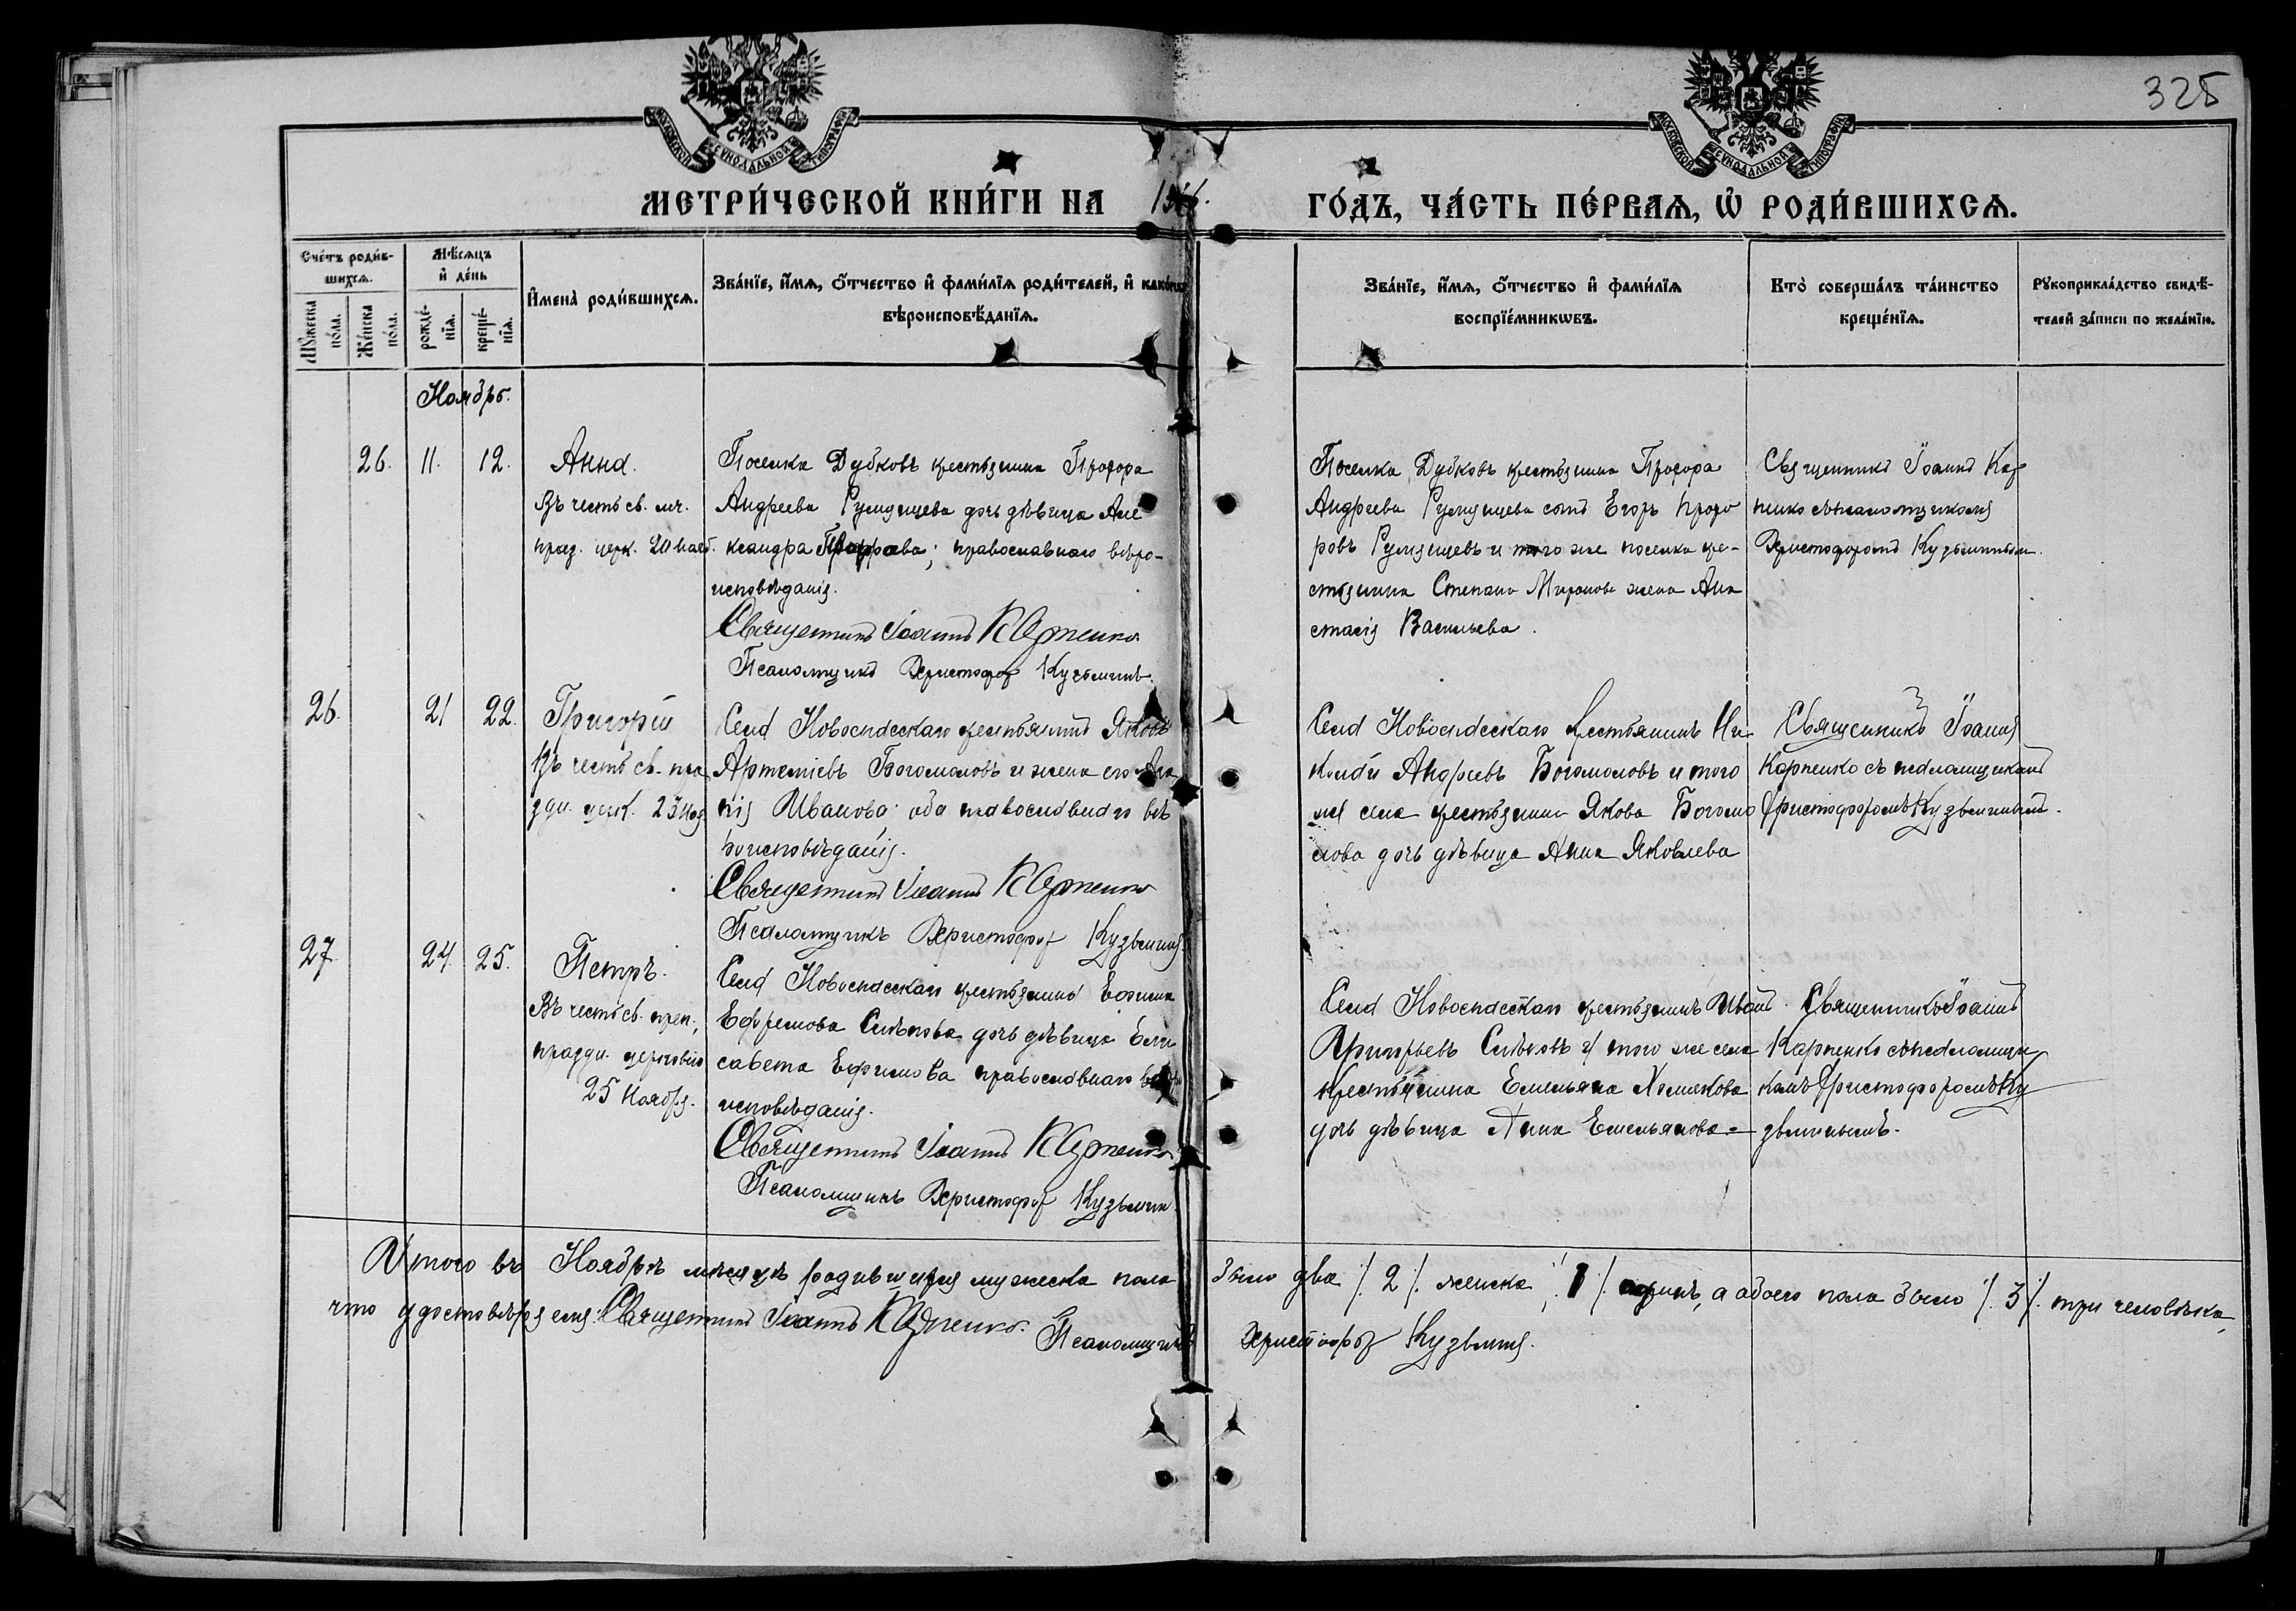 325
МОСКОВСКОЙ СѴНОДАЛЬНОЙ ТИПОГРАФІИ
МОСКОВСКОЙ СѴНОДАЛЬНОЙ ТИПОГРАФІИ
МЕТРИ́ЧЕСКОЙ КНИ́ГИ НА
ГО́ДЪ, ЧА́СТЬ ПЕ́РВАѦ, Ѡ РОДИ́ВШИХСѦ.
Сче́тъ роди́в-
шихсѧ.
Мꙋжеска по́ла.
Же́нска по́ла.
Мѣ́сѧцъ
и де́нь
рожде́-нїѧ.
креще́-нїѧ.
Имена̀ роди́вшихсѧ.
Зва́нїе, и́мѧ, о́тчество и фами́лїѧ роди́телей, и како́гѡ
вѣроисповѣ́данїѧ.
Зва́нїе, и́мѧ, о́тчество и фами́лїѧ
воспрїе́мникѡвъ.
Кто̀ соверша́лъ та́инство
креще́нїѧ.
Рꙋкоприкла́дство свидѣ́-
телей за́писи по жела́нїю.
Ноябрь.
26. 11. 12. Анна.
Въ честь св. мч.
праз. церк.
Поселка Дубковъ крестьянина Прохора
Андреева Румянцева дочь дѣвица Але
ксандра; православнаго вѣро-
исповѣданія.
Священникъ Іоаннъ Карпенко
Псаломщикъ Христофор Кузьминъ.
Поселка Дубковъ крестьянина Прохора
Андреева Румянцева сынъ Егоръ Прохо
ровъ Румянцевъ и того же поселка кре-
стьянина Степана Миронова жена Ана
стасія Васильева.
Священникъ Іоаннъ Кар
пенко съ псаломщикомъ
Христофоромъ Кузьминымъ.
26. 21 22. Григорій
Въ честь св. пра
здн. церк. 23 Ноя
Села Новоспасскаго крестьянинъ Яковъ
Артеміевъ Богомоловъ и жена его
Иванова оба православнаго вѣ
роисповѣданія.
Священникъ Іоаннъ Карпенко
Псаломщикъ Христофор Кузьминъ
Села Новоспасскаго крестьянинъ Ни
колай Андреевъ Богомоловъ и того
же села крестьянина Якова Богомо
лова дочь дѣвица Анна Яковлева
Священникъ Іоаннъ
Карпенко съ псаломщикомъ
Христофоромъ Кузьминымъ.
27. 24. 25. Петръ.
Въ честь св.
праздн. церковію
25 Ноября.
Села Новоспасскаго крестьянина Ефима
Ефремова дочь дѣвица Ели
савета Ефимова православнаго вѣро
исповѣданія.
Священникъ Іоаннъ Карпенко
Псаломщикъ Христофор Кузьмин
Села Новоспасскаго крестьянинъ Иванъ
Григорьевъ и того же села
крестьянина Емельяна Хомякова
дочь дѣвица Анна Емельянова
Священникъ Іоаннъ
Карпенко съ псаломщи
комъ Христофоромъ Ку
зьминымъ.
Итого въ Ноябрѣ мѣсяцѣ родившихся мужеска пола было два /. 2 /. женска /. 1 /. одинъ, а обоего пола было /. 3 /. три человѣка,
что удостовѣряемъ: Священникъ Іоаннъ Карпенко.
Псаломщикъ Христофоръ Кузьминъ.